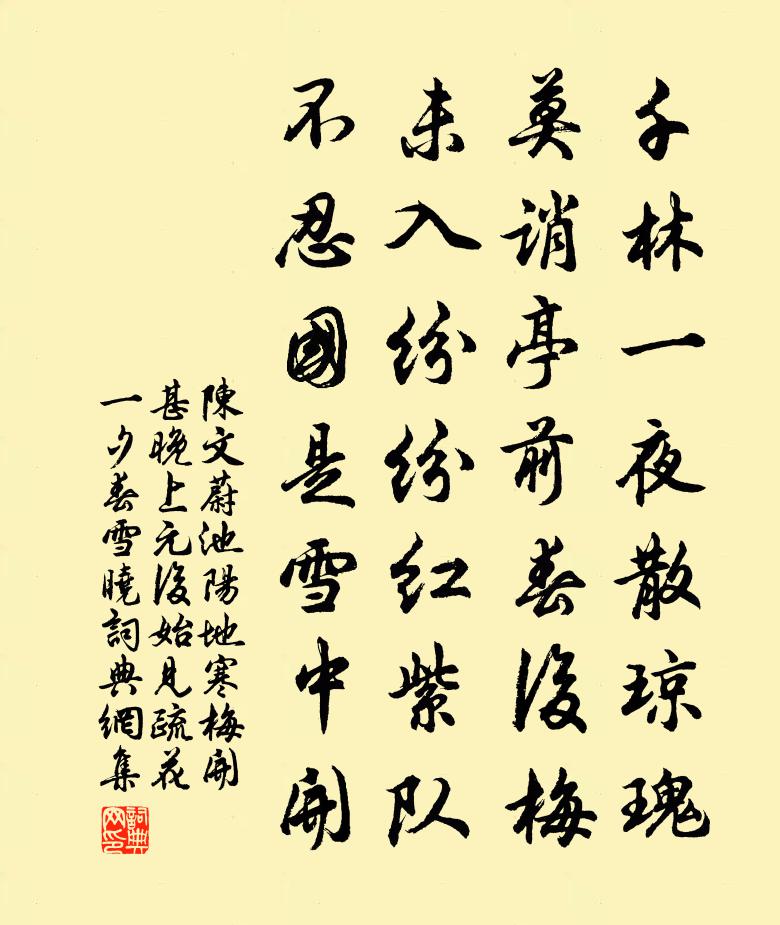 千林一夜散琼瑰
莫誚亭前春後梅
未入紛紛紅紫队
不忍國是雪中開
陳文蔚池陽地寒梅開
甚晚上元後始見疏花
一夕春雪曉詞典網集
詞典网印